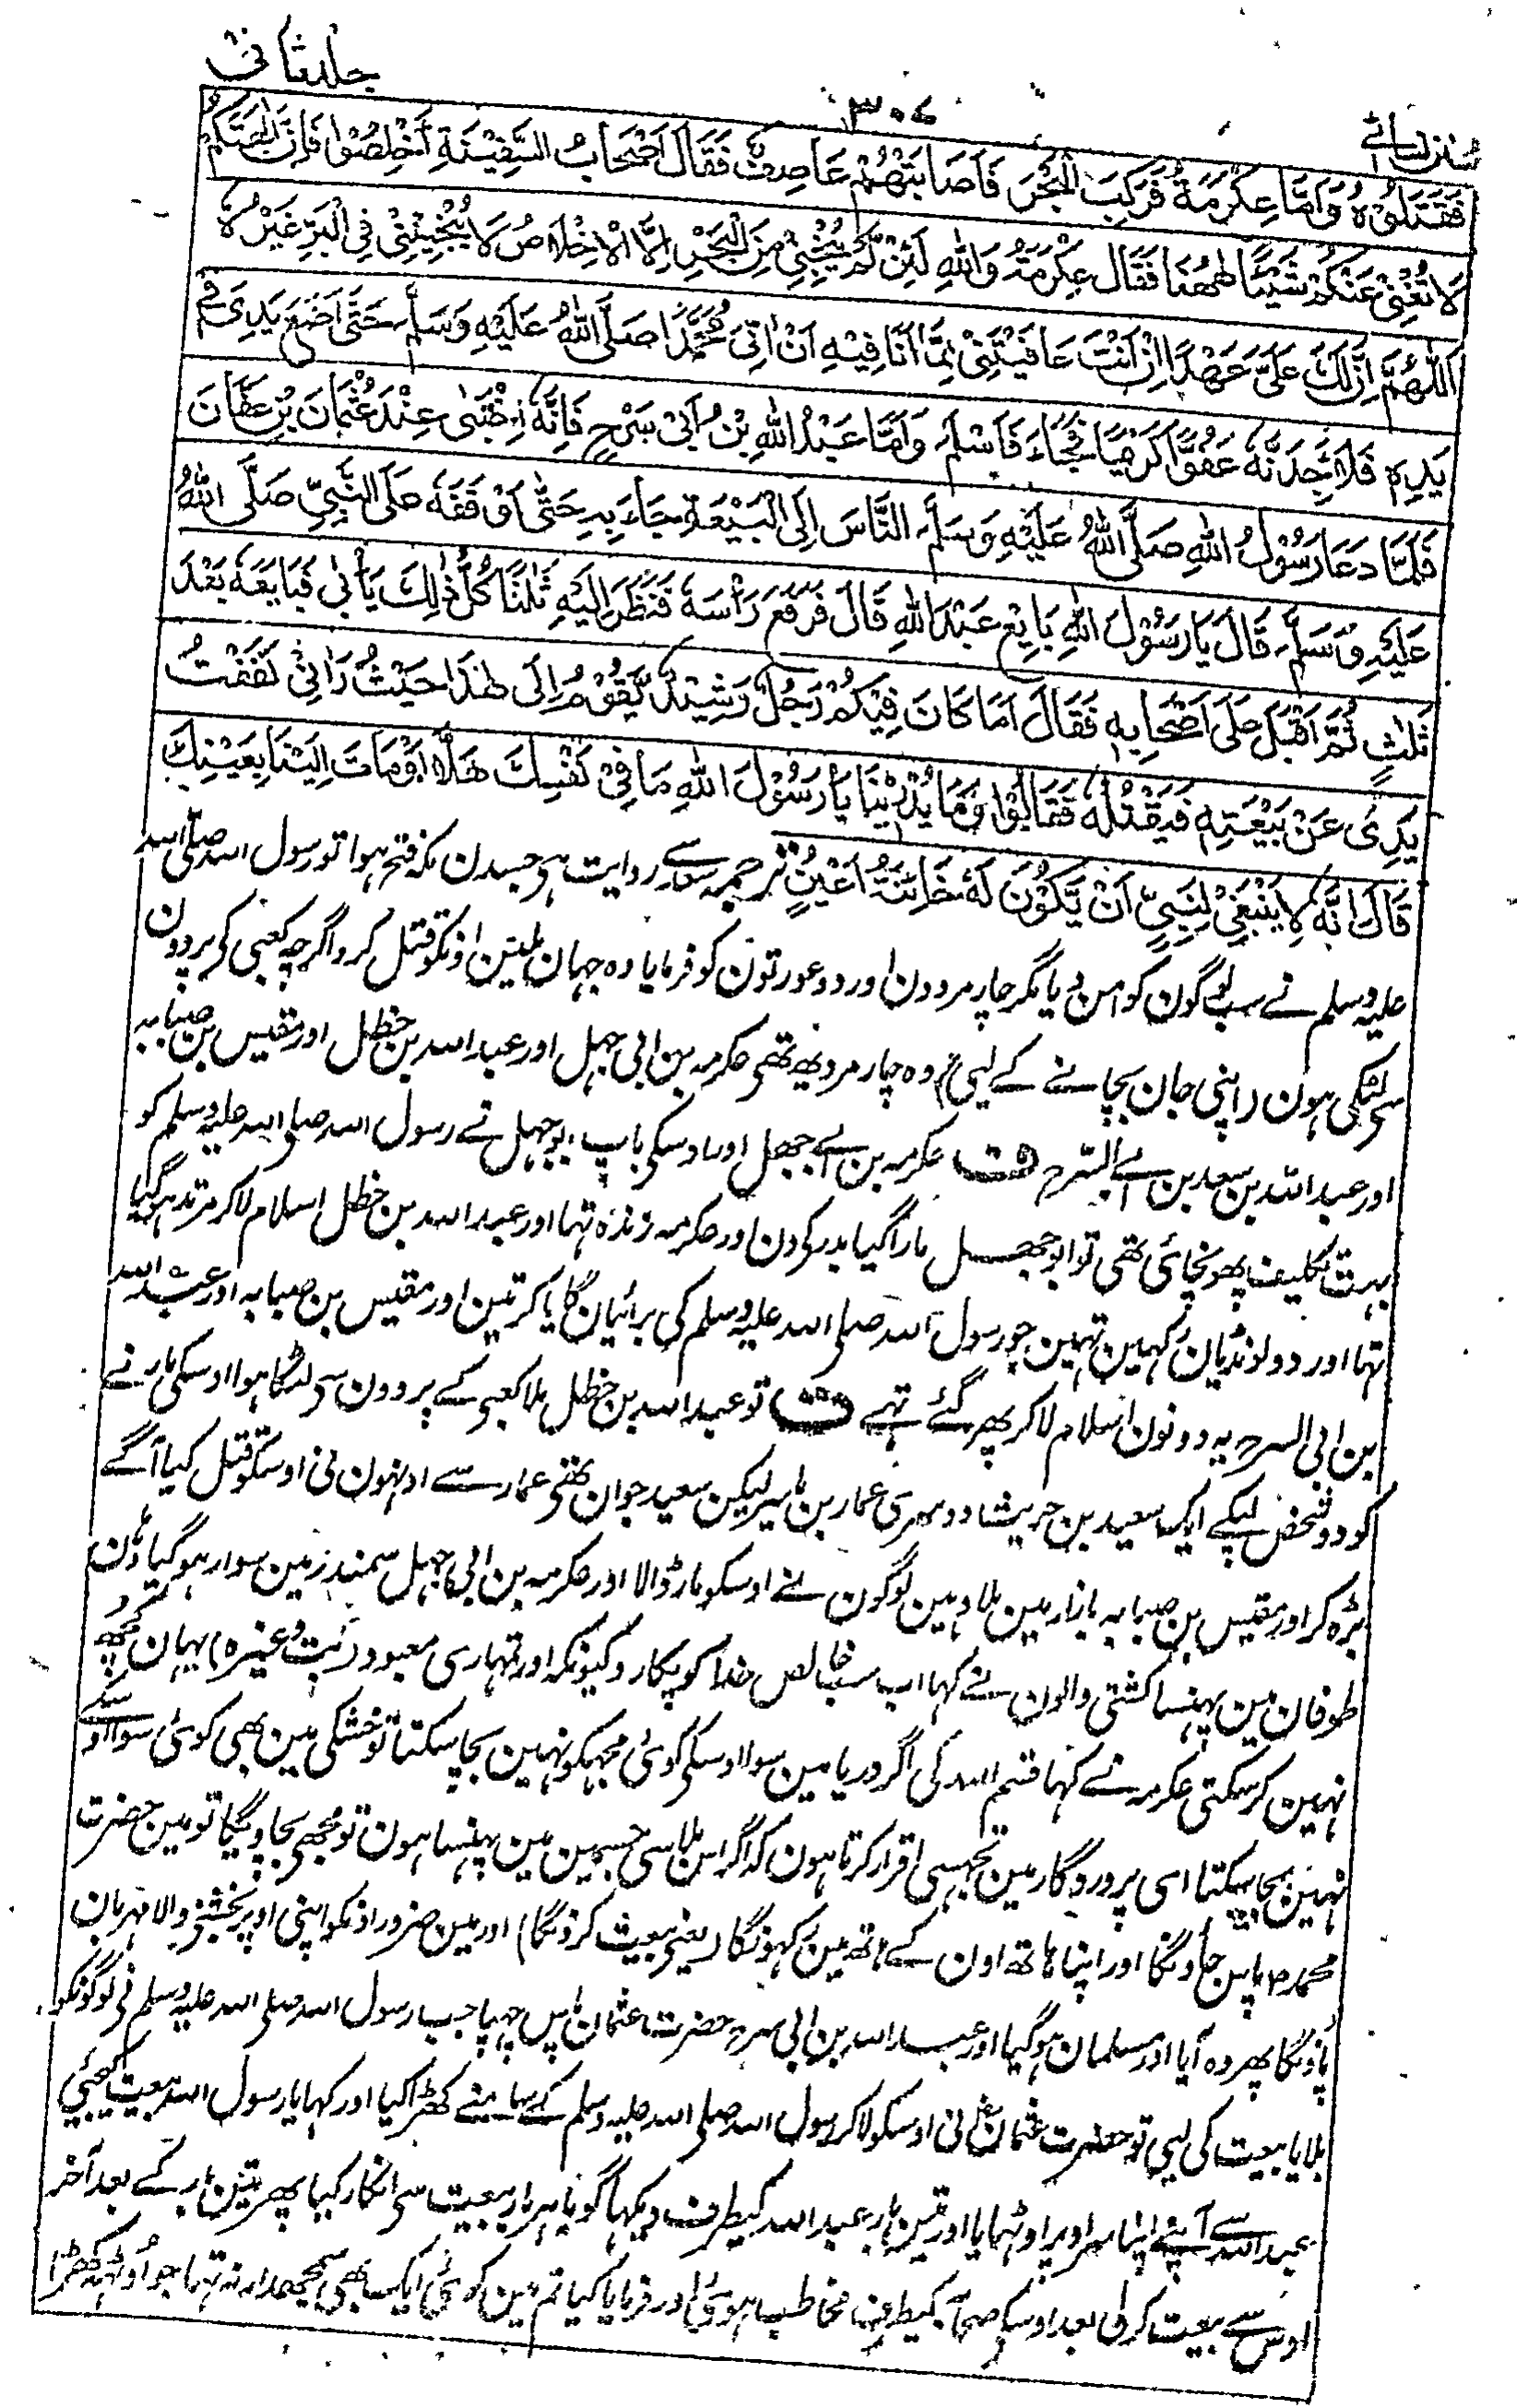 سنن نسائے
۳۰۷
جلد ثانی
فَقَتَلُوْهُ وَاَمَّا عِكْرِمَةُ فَرَكِبَ الْبَحْرَ فَاَصَابَتْهُمْ عَاصِفٌ فَقَالَ اَصْحَابُ السَّفِيْنَةِ اَخْلِصُوْا فَاِنَّ اٰلِهَتَكُمْ
لَا تُغْنِيْ عَنْكُمْ شَيْئًا هٰهُنَا فَقَالَ عِكْرِمَةُ وَاللّٰهِ لَئِنْ لَّمْ يُنَجِّنِيْ مِنَ الْبَحْرِ اِلَّا الْاِخْلَاصُ لَا يُنَجِّيْنِيْ فِي الْبَرِّ غَيْرُهٗ
اَللّٰهُمَّ اِنَّ لَكَ عَلَيَّ عَهْدًا اِنْ اَنْتَ عَافَيْتَنِيْ مِمَّا اَنَا فِيْهِ اَنْ اٰتِيَ مُحَمَّدًا صَلَّى اللّٰهُ عَلَيْهِ وَسَلَّمَ حَتّٰى اَضَعَ يَدِيْ فِيْ
يَدِهٖ فَلَاَجِدَنَّهٗ عَفُوًّا كَرِيْمًا فَجَاءَ فَاَسْلَمَ وَاَمَّا عَبْدُ اللّٰهِ بْنُ اَبِيْ سَرْحٍ فَاِنَّهٗ اخْتَبٰى عِنْدَ عُثْمَانَ بْنِ عَفَّانَ
فَلَمَّا دَعَا رَسُوْلُ اللّٰهِ صَلَّى اللّٰهُ عَلَيْهِ وَسَلَّمَ النَّاسَ اِلَى الْبَيْعَةِ جَاءَ بِهٖ حَتّٰى اَوْقَفَهٗ عَلَى النَّبِيِّ صَلَّى اللّٰهُ
عَلَيْهِ وَسَلَّمَ قَالَ يَا رَسُوْلَ اللّٰهِ بَايِعْ عَبْدَ اللّٰهِ قَالَ فَرَفَعَ رَأْسَهٗ فَنَظَرَ اِلَيْهِ ثَلٰثًا كُلَّ ذٰلِكَ يَأْبٰى فَبَايَعَهٗ بَعْدَ
ثَلٰثٍ ثُمَّ اَقْبَلَ عَلٰى اَصْحَابِهٖ فَقَالَ اَمَا كَانَ فِيْكُمْ رَجُلٌ رَشِيْدٌ يَّقُوْمُ اِلٰى هٰذَا حَيْثُ رَاٰنِيْ كَفَفْتُ
يَدِيْ عَنْ بَيْعَتِهٖ فَيَقْتُلُهٗ فَقَالُوْا وَمَا يُدْرِيْنَا يَا رَسُوْلَ اللّٰهِ مَا فِيْ نَفْسِكَ هَلَّا اَوْمَاْتَ اِلَيْنَا بِعَيْنِكَ
قَالَ اِنَّهٗ لَا يَنْبَغِيْ لِنَبِيٍّ اَنْ يَّكُوْنَ لَهٗ خَائِنَةُ اَعْيُنٍ ترجمہ سعد سے روایت ہی جسدن مکہ فتح ہوا تو رسول اللہ صلی اللہ
علیہ وسلم نے سب لوگون کو امن دیا مگر چار مردون اور دو عورتون کو فرمایا وہ جہان ملین اونکو قتل کرو اگرچہ کعبی کی پردون
سی لٹکی ہون (اپنی جان بچانے کے لیی) وہ چار مرد یہ تھی عکرمہ بن ابی جہل اور عبد اللہ بن خطل اور مقیس بن صبابہ
اور عبد اللہ بن سعد بن ابی السرح ف عکرمہ بن ابی جھل اور اوسکی باپ ابو جہل نے رسول اللہ صلی اللہ علیہ وسلم کو
بہت تکلیف پھونچائی تھی تو ابو جھل مارا گیا بدر کی دن اور عکرمہ زندہ تھا اور عبد اللہ بن خطل اسلام لا کر مرتد ہو گیا
تھا اور دو لونڈیان رکہین تہین جو رسول اللہ صلی اللہ علیہ وسلم کی برائیان گایا کرتین اور مقیس بن صبابہ اور عبد اللہ
بن ابی السرح یہ دونون اسلام لا کر پھر گئے تہے ف تو عبد اللہ بن خطل ملا کعبے کے پردون سی لٹکا ہوا اوسکی مارنے
کو دو شخص لپکے ایک سعید بن حریث دوسری عمار بن یاسر لیکن سعید جوان تھی عمار سے اونہون نی اوسکو قتل کیا آگے
بڑہ کر اور مقیس بن صبابہ بازار مین ملا وہین لوگون نے اوسکو مار ڈالا اور عکرمہ بن ابی جہل سمندر مین سوار ہو گیا وہان
طوفان مین پہنسا کشتی والون نے کہا اب سب خالص خدا کو پکارو کیونکہ اور تمہاری معبود (بت وغیرہ) یہان کچھ
نہین کر سکتی عکرمہ نے کہا قسم اللہ کی اگر دریا مین سوا اوسکی کوئی مجہکو نہین بچا سکتا تو خشکی مین بھی کوئی سوا اوسکے
نہین بچا سکتا اسی پروردگار مین تجہسی اقرار کرتا ہون کہ اگر اس بلا سی جسمین مین پہنسا ہون تو مجھی بچاویگا تو مین حضرت
محمد ص پاس جاونگا اور اپنا ہاتھ اون کے ہاتھ مین رکہونگا (یعنی بیعت کرونگا) اور مین ضرور اونکو اپنی اوپر بخشنے والا مہربان
پاؤنگا پھر وہ آیا اور مسلمان ہو گیا اور عبد اللہ بن ابی سرح حضرت عثمان پاس چہپا جب رسول اللہ صلی اللہ علیہ وسلم نی لوگونکو
بلایا بیعت کی لیی تو حضرت عثمان نی اوسکو لا کر رسول اللہ صلی اللہ علیہ وسلم کے سامنے کھڑا کیا اور کہا یا رسول اللہ بیعت کیجیی
عبد اللہ سے آپنے اپنا سر اوپر اوٹہایا اور تین بار عبد اللہ کیطرف دیکہا گویا ہر بار بیعت سی انکار کیا پھر تین بار کے بعد آخر
اوس سے بیعت کر لی بعد اوسکے صحابہ کیطرف مخاطب ہوئی اور فرمایا کیا تم مین کوئی ایک بھی سمجھدار نہ تہا جو اوٹہہ کھڑا